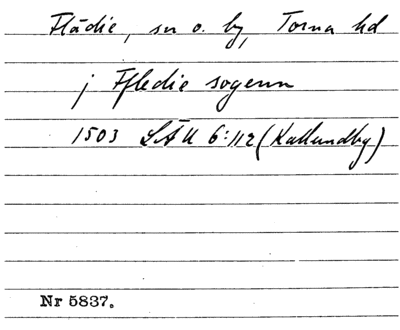 Flädie, sn o. by, Torna hd
j Fflædie sogenn
1503 LÄU 6:112 (Kallundby)
Nr 5837.